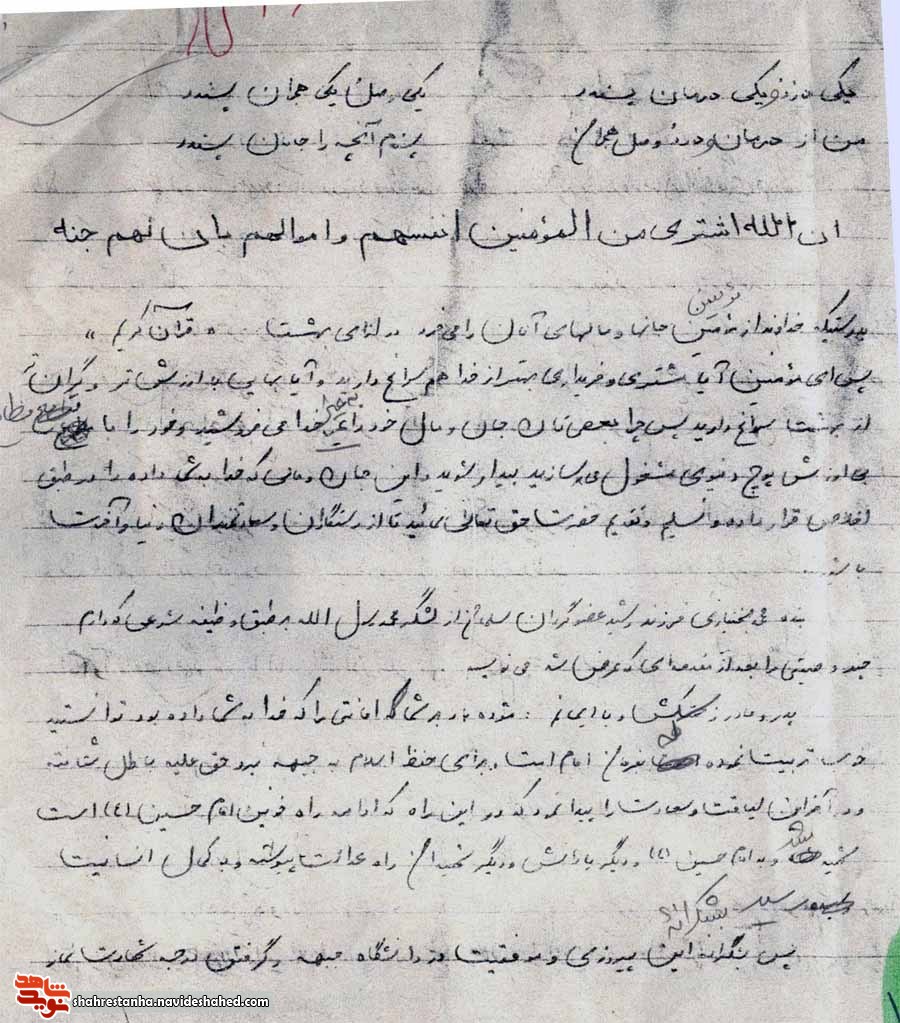 یکی درد و یکی درمان پسندد یکی وصل و یکی هجران پسندد
من از درمان و درد و وصل و هجران پسندم آنچه را جانان پسندد
ان الله اشتری من المؤمنین انفسهم و اموالهم بان لهم جنه
بدرستیکه خداوند از مؤمنین مؤمنین جانها و مالهای آنان را می‌خرد در ازای بهشت « قرآن کریم »
پس ای مؤمنین آیا مشتری و خریداری بهتر از خدا هم سراغ دارید و آیا بهایی با ارزش تر و گران تر
از بهشت سراغ دارید پس چرا بعضی تان جان و مال خود را بغیر خدا می فروشید و خود را با
بی ارزش پوچ دنیوی مشغول می سازید بیدار شوید و این جان و مالی که خدا به شما داده را در طبق
اخلاص قرار داده و تسلیم و تقدیم حضرت حق تعالی نمائید تا از رستگاران و سعادتمندان دنیا و آخرت
باشید
بنده بختیاری فرزند رشید عضو گردان سلمان از لشگر محمد رسول الله بر طبق وظیفه شرعی که دارم
چند وصیتی را بعد از مقدمه‌ای که عرض شد می نویسم
پدر و مادر زحمتکش و با ایمانم : مژده باد بر شما که امانتی را که خدا به شما داده بود توانستید
خوب تربیت نموده که بفرمان امام امت و برای حفظ اسلام به جبهه نبرد حق علیه باطل شتافته
و در آخر این لیاقت و سعادت را پیدا نمود که در این راه که ادامه راه خونین امام حسین (ع) است
شهید بشد و به امام حسین (ع) و دیگر یارانش و دیگر شهیدان راه عدالت پیوسته و به کمال انسانیت
رسید بشکرانه
پس بشکرانه این پیروزی و موفقیت در دانشگاه جبهه و گرفتن درجه شهادت نماز
نوید شاهد
shahrestanha.navideshahed.com